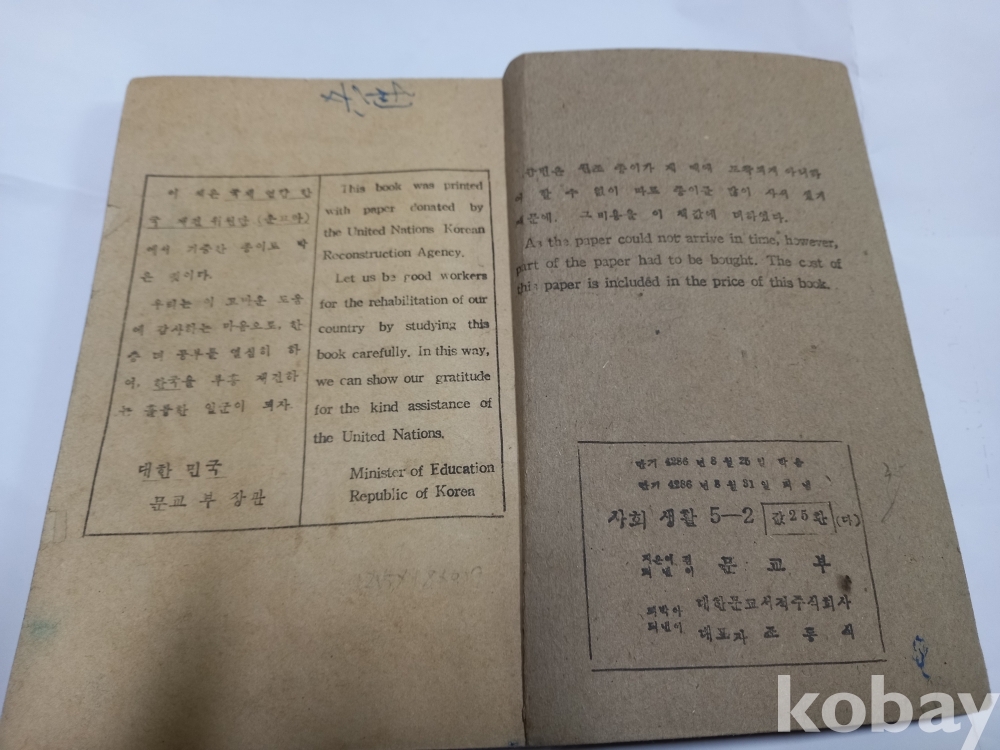 이 책은 국제 연합 한
국 재건 위원단 (운끄라)
에서 기증한 종이로 박
은 것이다.
우리는 이 고마운 도움
에 감사하는 마음으로, 한
층 더 공부를 열심히 하
여, 한국을 부흥 재건하
는 훌륭한 일군이 되자.
대한 민국
문교 부 장관
This book was printed
with paper donated by
the United Nations Korean
Reconstruction Agency.
Let us be good workers
for the rehabilitation of our
country by studying this
book carefully. In this way,
we can show our gratitude
for the kind assistance of
the United Nations.
Minister of Education
Republic of Korea
원조 종이가 제 때에 도착되지 아니하
여 할 수 없이 따로 종이를 많이 사서 썼기
때문에, 그 비용을 이 책값에 더하였다.
As the paper could not arrive in time, however,
part of the paper had to be bought. The cost of
this paper is included in the price of this book.
단기 4286 년 8 월 25 일 박음
단기 4286 년 8 월 31 일 펴냄
사회 생활 5—2 값 25 환 (다)
지은이 겸
펴낸이 문 교 부
박아
펴낸이 대한문교서적주식회사
대표자 조 동 식
kobay